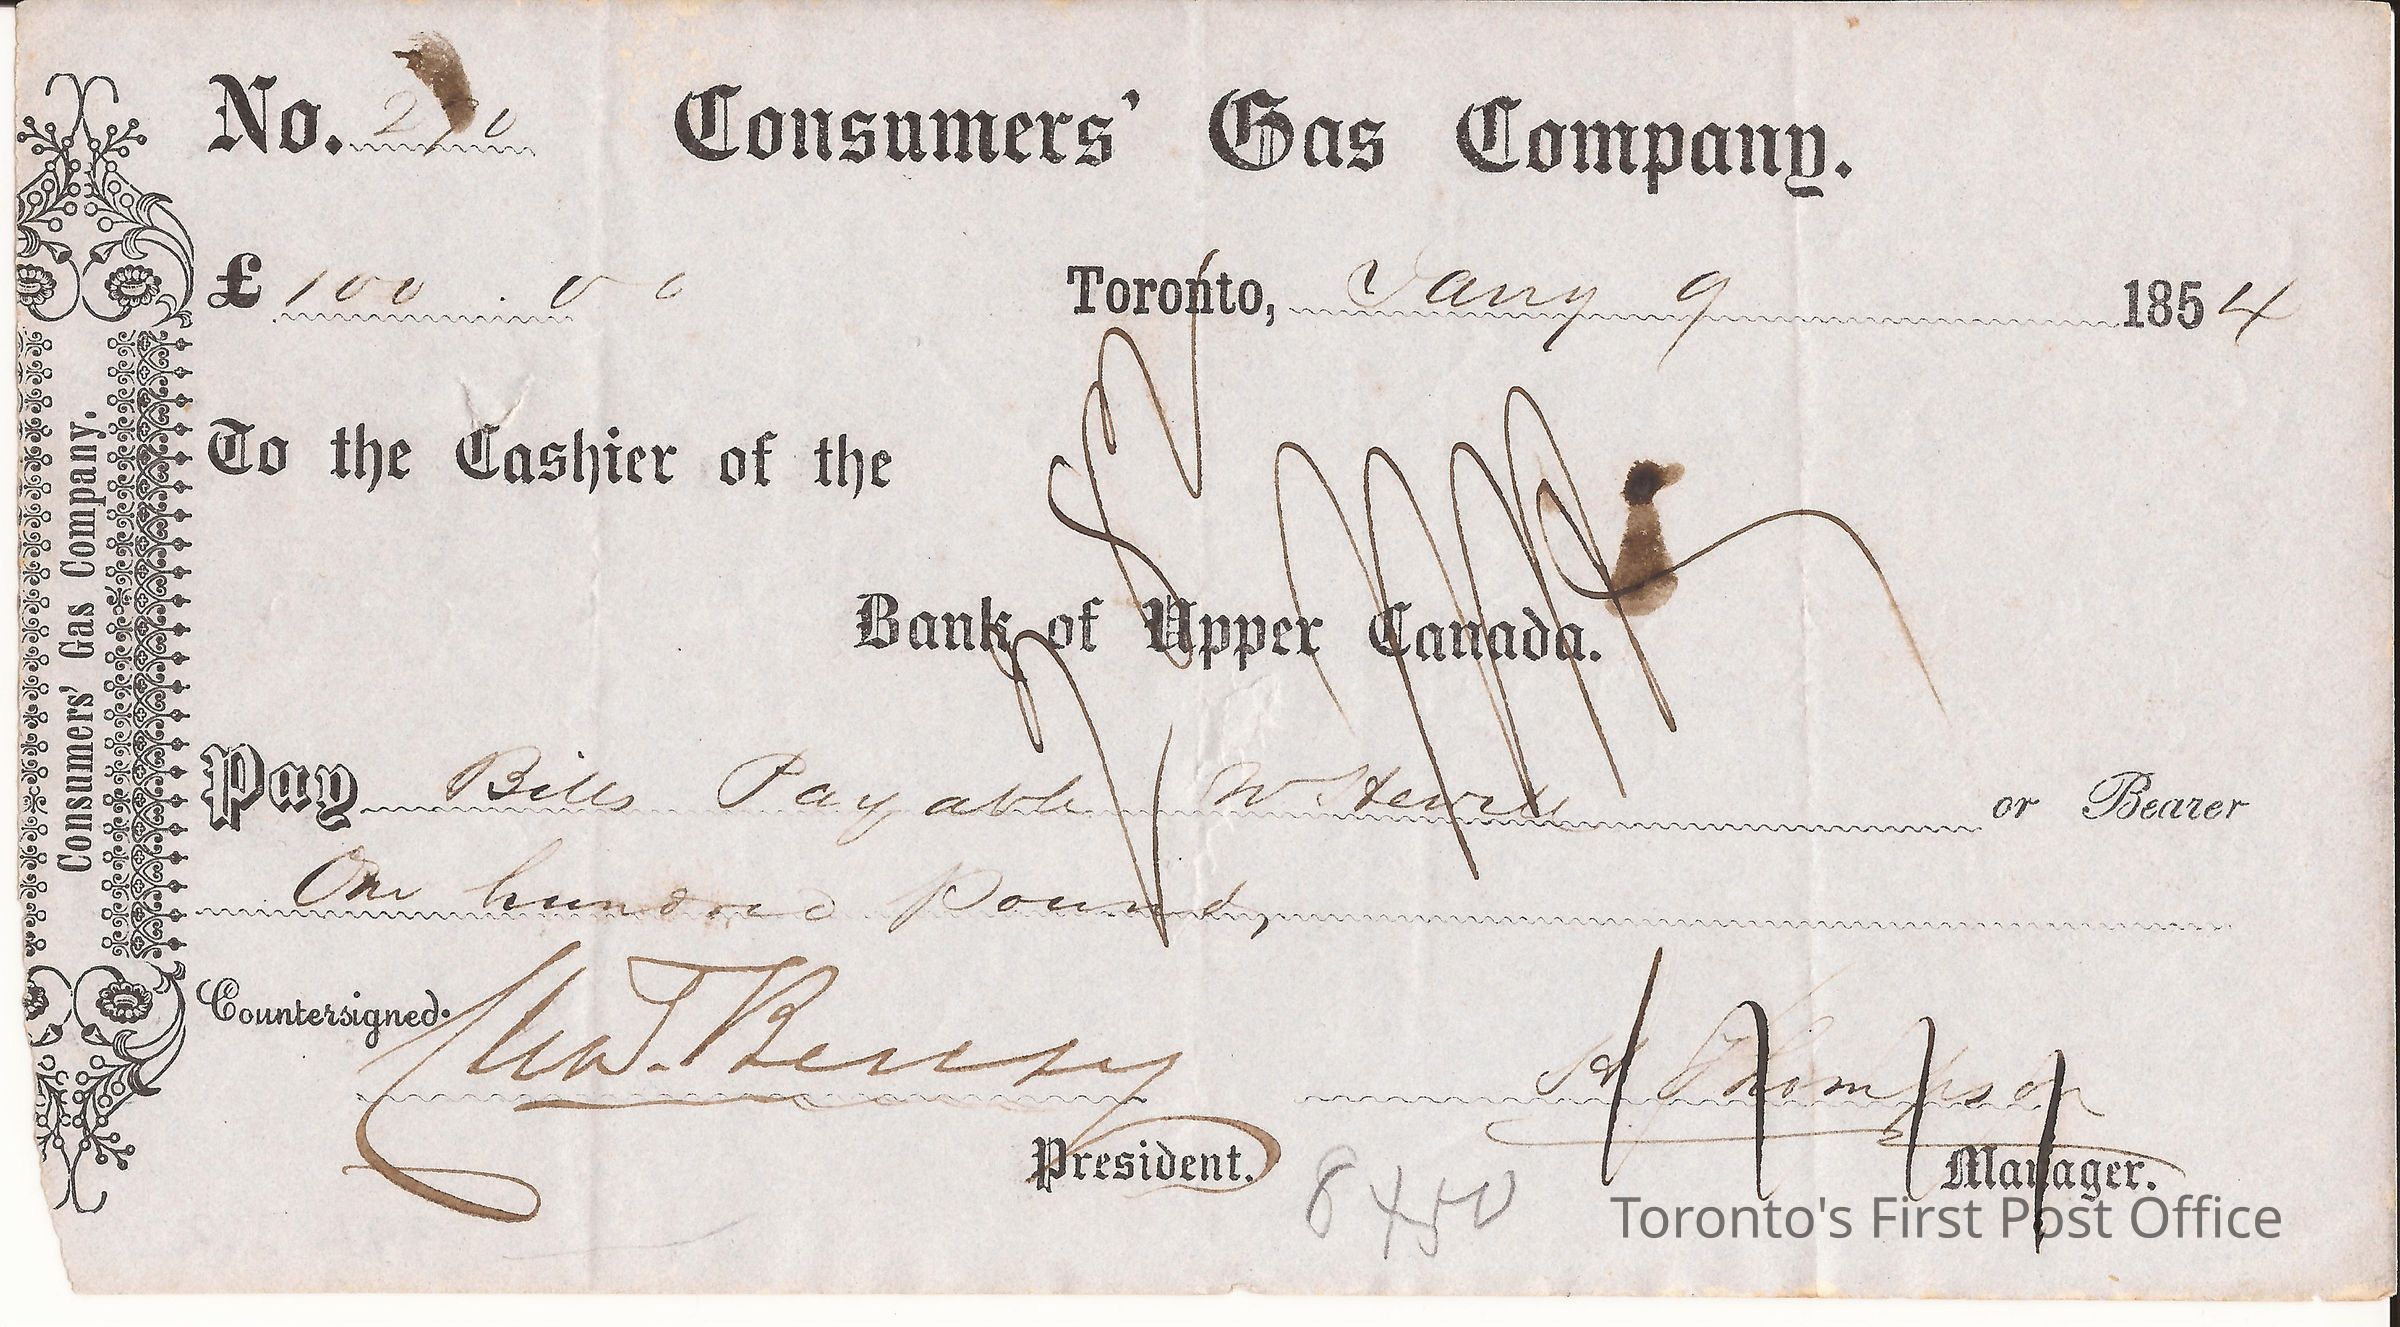 No. 2
Consumers' Gas Company.
£ 100 . 0 0
Toronto, Jany 9 1854
To the Cashier of the
Bank of Upper Canada.
Pay Bills Payable or Bearer
One hundred Pounds
Countersigned.
Chas. Berczy
President.
H Thompson
Manager.
8450
Consumers' Gas Company.
Toronto's First Post Office